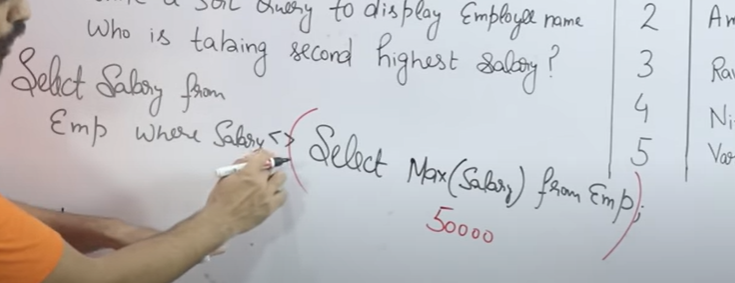 a SQL Query to display Employee name
Who is taking second highest Salary?
Select Salary from
Emp where Salary <> (Select Max(Salary) from Emp);
50000
2
3
4
5